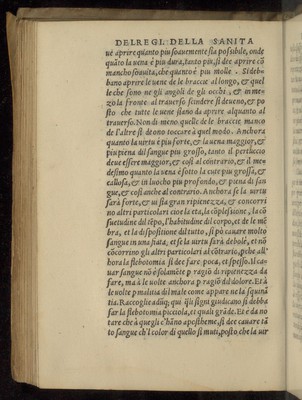 DELREGI. DELLA SANITA
ue aprire quanto piu soauemente sia possibile, onde
quãto la uena è piu dura, tanto piu, si dee aprire cõ
mancho souuita, che quanto è piu molle. Sideb-
bano aprire le uene de le braccie al longo, & quel
le che sono ne gli angoli de gli occhi, & in me-
zo la fronte al trauerso scindere si deueno, & po
sto che tutte le uene stano da aprire alquanto al
trauerso. Non di meno quelle de le braccie manco
de l'altre si deono toccare à quel modo. Anchora
quanto la uirtu è piu forte, & la uena maggior, &
piu piena di sangue piu grosso, tanto il pertuccio
deue essere maggior, & cosi al contrario, & il me
desimo quanto la uena è sotto la cute piu grossa, &
callosa, & in luocho piu profondo, & piena di san
gue, & cosi anche al contrario. Anchora se la uirtu
sarà forte, & ui sta gran ripienezza, & concorri
no altri particolari cioè la eta, la cõplessione, la cõ
suetudine del tẽpo, l'habitudine del corpo, et de le mẽ
bra, et la dispositione del tutto, si pò cauare molto
sangue in una fiata, et se la uirtu sarà debole, et nõ
cõcorrino gli altri particolari al cõtrario, prbe all'
hora la flebotomia si dee fare poca, et spesso. Il ca-
uar sangue nõ è solamẽte p ragiõ di ripienezza da
fare, ma à le uolte anchora p ragiõ dil dolore. Et à
le uolte p malitia dil male come appare ne la squinã
tia. Raccoglie adũq; qui ĩ q̃li signi giudicano si debba
far la flebotomia picciola, et quali grãde. Et è da no
tare che à quegli c'hãno apostheme, si dee cauare tã
to sangue ch'l color di quello si muti, posto, che la uir